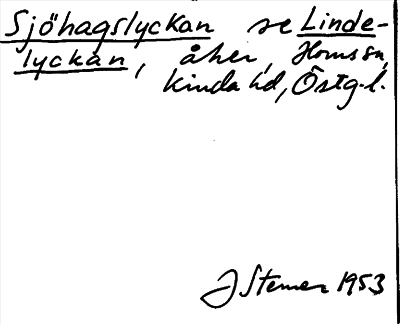 Sjöhagslyckan se Linde-
lyckan, åker, Horns sn,
Kinda hd, Östg. l.
J Stemer 1953